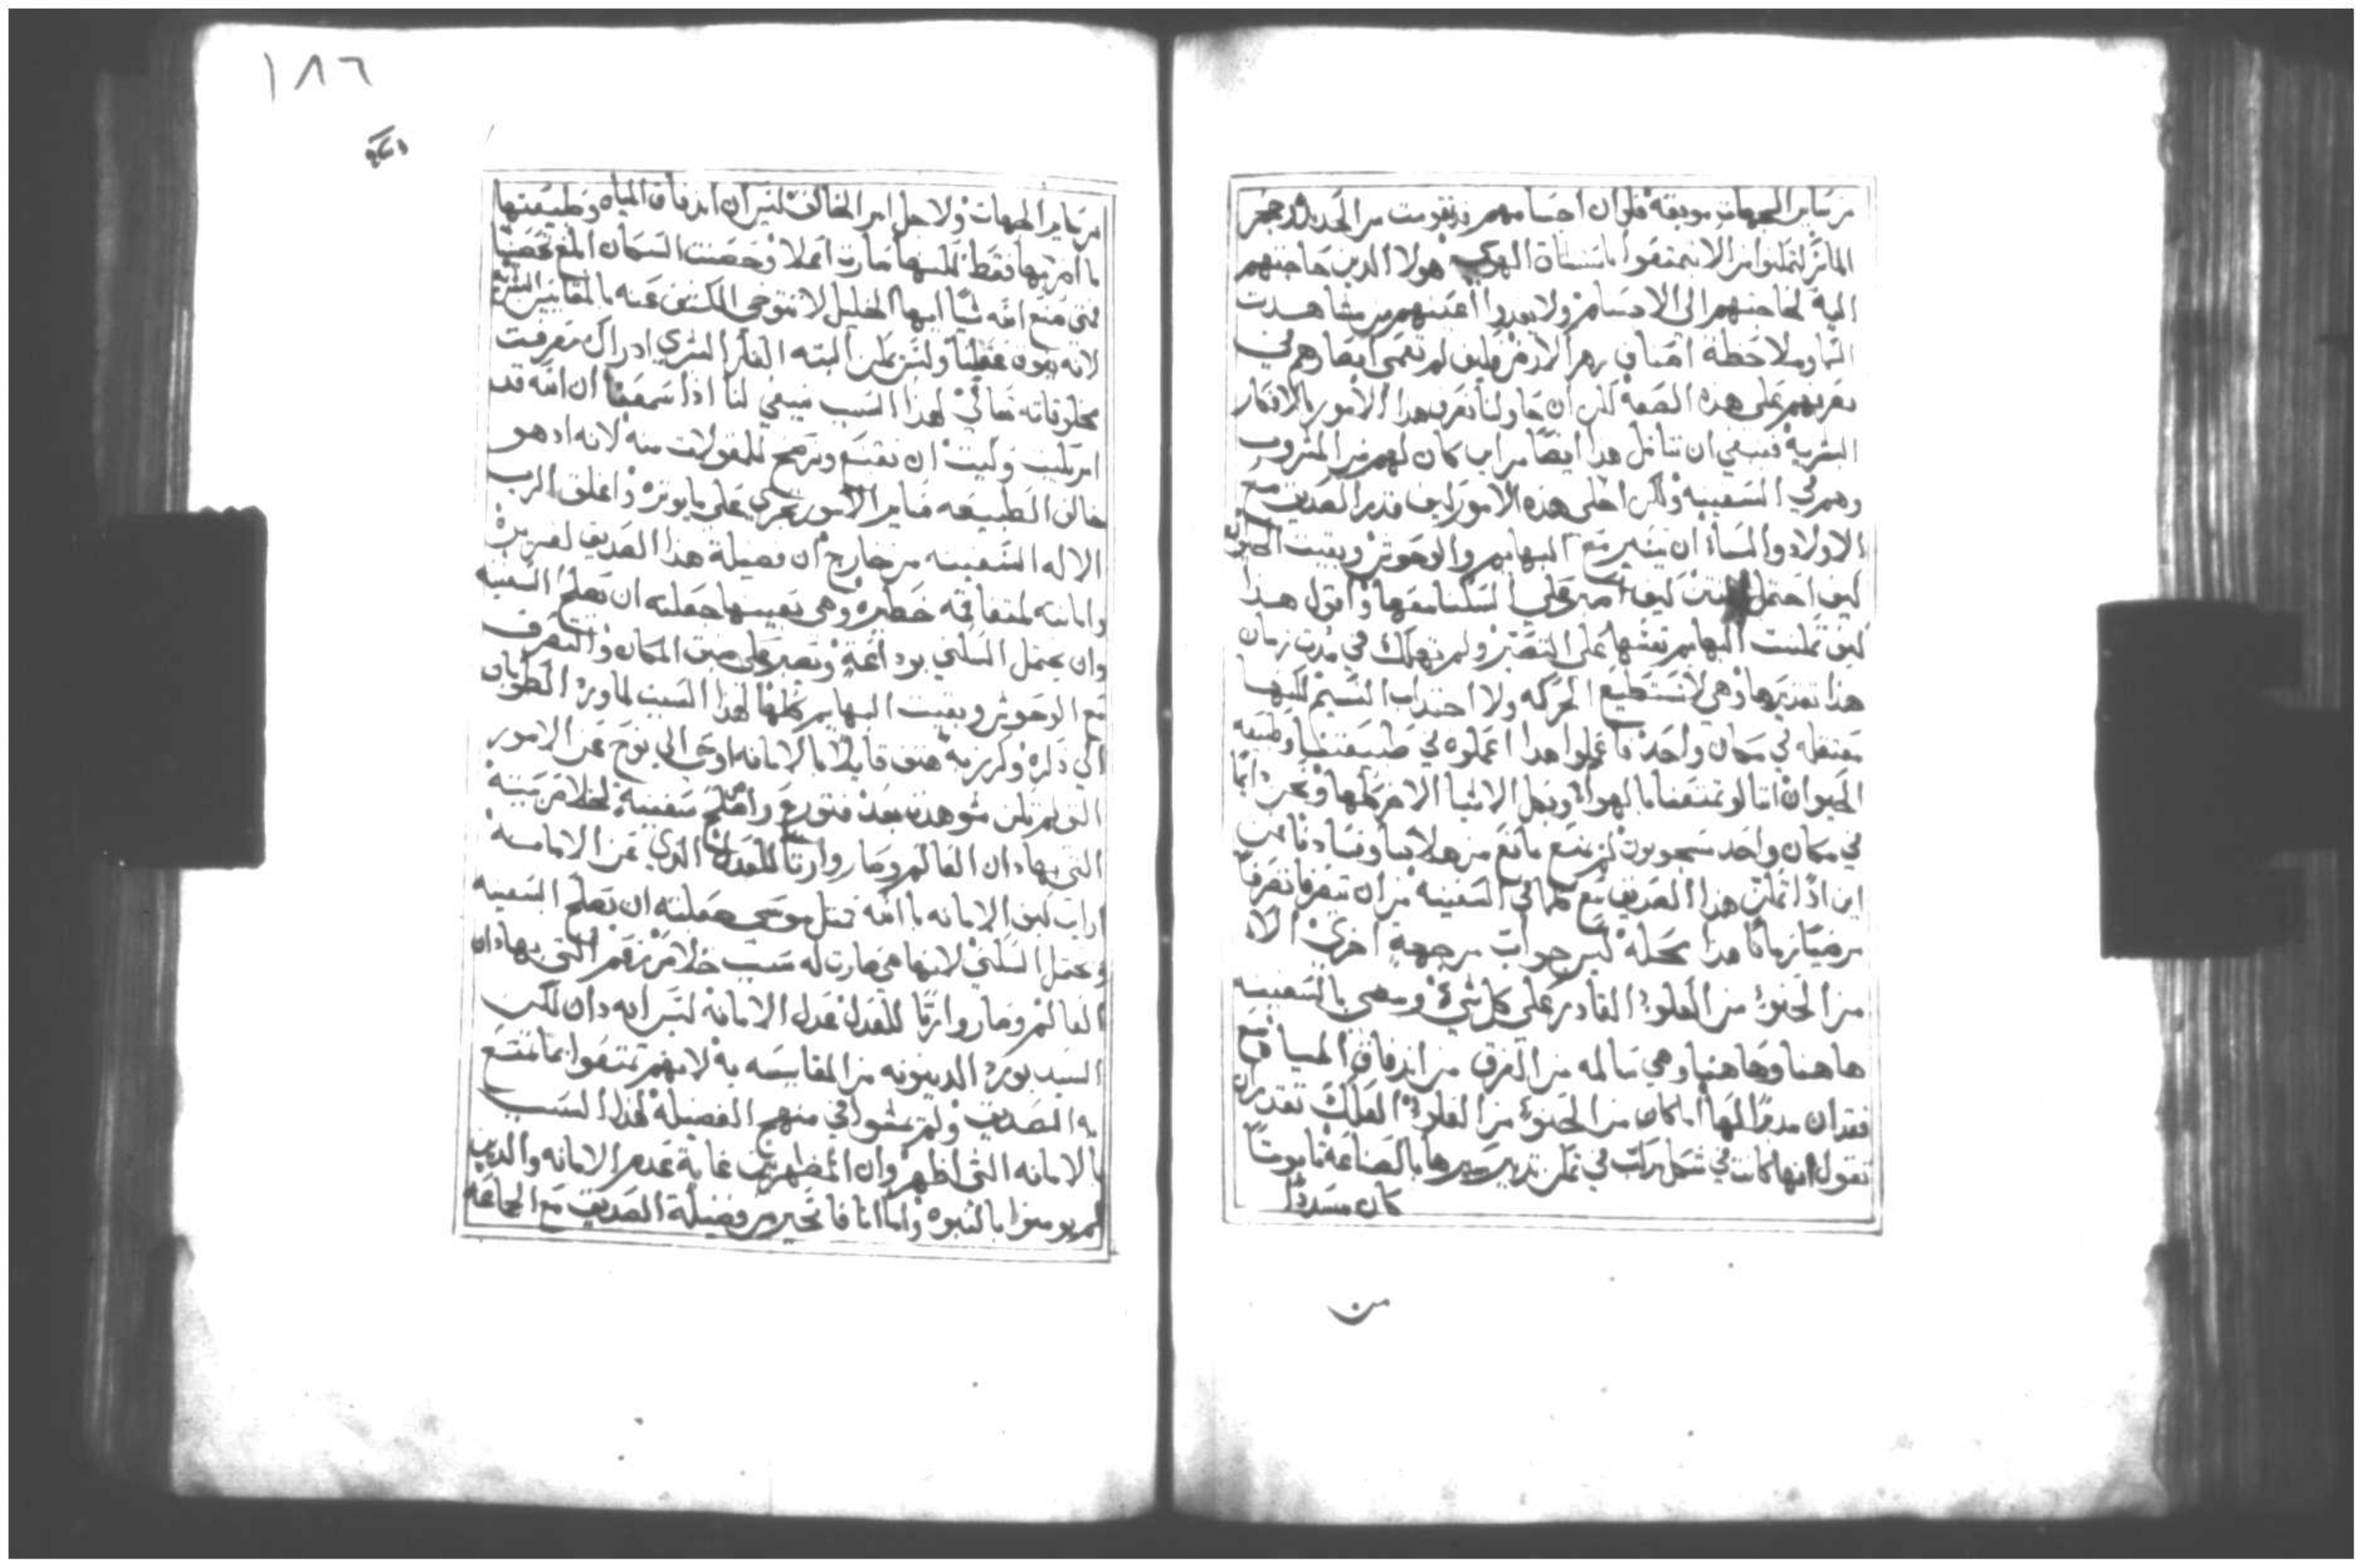 من ساير الجهات موبقه فلو ان اجسامهم قد تقومت من الحديد او حجر
الماس لتمكنوا من الا يتمتعوا باستنشاق الهوى هولا الدين حاجتهم
اليه كحاجتهم الى الاجسام ولا يغدوا اعينهم من مشاهدت
السما وملاحظة اصناف زهر الارض وكيف لم تعمى ابصارهم في
تصرفهم على هده الصفه لكن ان حاولنا نعرف هدا الامور بالافكار
البشريه فينبغي ان نتامل هدا ايضًا من اين كان لهم من المشروب
وهم في السفينه ولكن اخلى هده الامور كيف قدر الصديق مع
الاولاد والنساء ان يسير مع البهايم والوحوش وبقيت الطيور
كيف احتمل النتن كيف صبر على السكنا معها واقول هدا
كيف تمكنت البهايم نفسها على التصبر ولم تهلك في مدت زمان
هدا تقديرها وهي لا تستطيع الحركه ولا اجتداب النسيم لكنها
معتقله في مكان واحد فاعلموا هدا اعلموه في طبيعتنا وطبيعه
الحيوان اننا لو تمتعنا بالهوا وبكل الاشيا الاخر كلها ونحن دايمًا
في مكان واحد مسجونون لم نمتنع مانع من هلاكنا وفسادنا فمن
اين ادًا تمكن هدا الصديق مع كلما في السفينه من ان يتصرفا تصرفًا
مرضيًا زمانًا هدا محله ليس جوابٌ من جهةٍ اخرى الا
من الحنو من العلو القادر على كل شيء ومضي بالسفينه
هاهنا وهاهنا وهي سالمه من الغرق من اندفاق المياه مع
فقدان مدبرًا لها اما كان من الحنو من العلو العلك تقدر ان
تقول انها كانت في شكل مركب في تمكن تدبير سيرها بالصناعه تابوتًا
كان مسدودًا
من
١٨٦
من ساير الجهات ولاجل امر الخالق ليس ان اندفاق المياه وطبيعتها
ما اضر بها فقط لكنها صارت اعلا وحصنت السكان المع تحصينًا
فمتى صنع الله شيًا ايها الخليل لا تتوخى الكشف عنه بالمقاييس البشريه
لانه يفوق عقلنا وليس يمكن البته الفكر البشري ادراك معرفت
مخلوقاته تعالى لهدا السبب ينبغي لنا ادا سمعنا ان الله قد
امر بكيت وكيت ان نقتنع ونرضخ للمقولات منه لانه اد هو
خالق الطبيعه فساير الامور تجري على ما يوثره واغلق الرب
الاله السفينه من خارج ان فضيلة هدا الصديق لغزيره
وامانته لمتفاقمه خطيره وهي بعينها جعلته ان يصلح السفينه
وان يحتمل السكنى بوداعةٍ ويصبر على ضيق المكان والتصرف
مع الوحوش وبقيت البهايم كلها لهدا السبب لما ورد الطوبان
الي دكره وكرز به هتف قايلًا بالامانه اوحى الى نوح عن الامور
التي لم تكن شوهدت بعد فتورع واصلح سفينه لخلاص بيته
التي بها دان العالم وصار وارثًا للعدل الدي عن الامانه
ارايت كيف الامانه بالله قبل موسى جعلته ان يصلح السفينه
ويحتمل السكنى لانها هي صارت له سبب خلاص نعم التي بها دان
العالم وصار وارثًا للعدل عدل الامانه ليس انه دان لكن
السيد يورد الدينونه من المقايسه به لانهم تمتعوا بما تمتع
به الصديق ولم يمشوا في منهج الفضيله لهدا السبب
بالامانه التي اظهر دان المظهرين غاية عدم الامانه والدين
لم يومنوا بالنبوه واما انا فاتحير من فضيلة الصديق مع الجماعه